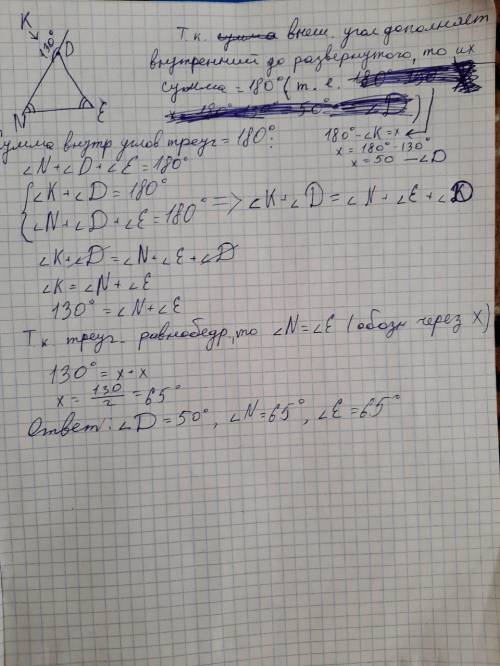 K
130°
D
N
E
Т.к. внеш. угол дополняет
внутренний до развернутого, то их
сумма = 180° (т.е.
180° - ∠K = x
x = 180° - 130°
x = 50 - ∠D
умма внутр углов треуг = 180°:
∠N + ∠D + ∠E = 180°
{∠K + ∠D = 180°
{∠N + ∠D + ∠E = 180° => ∠K + ∠D = ∠N + ∠E + ∠D
∠K + ∠D = ∠N + ∠E + ∠D
∠K = ∠N + ∠E
130° = ∠N + ∠E
Т к треуг. равнобедр, то ∠N = ∠E (обозн через X)
130° = x · x
x = 130/2 = 65°
Ответ: ∠D = 50°, ∠N = 65°, ∠E = 65°